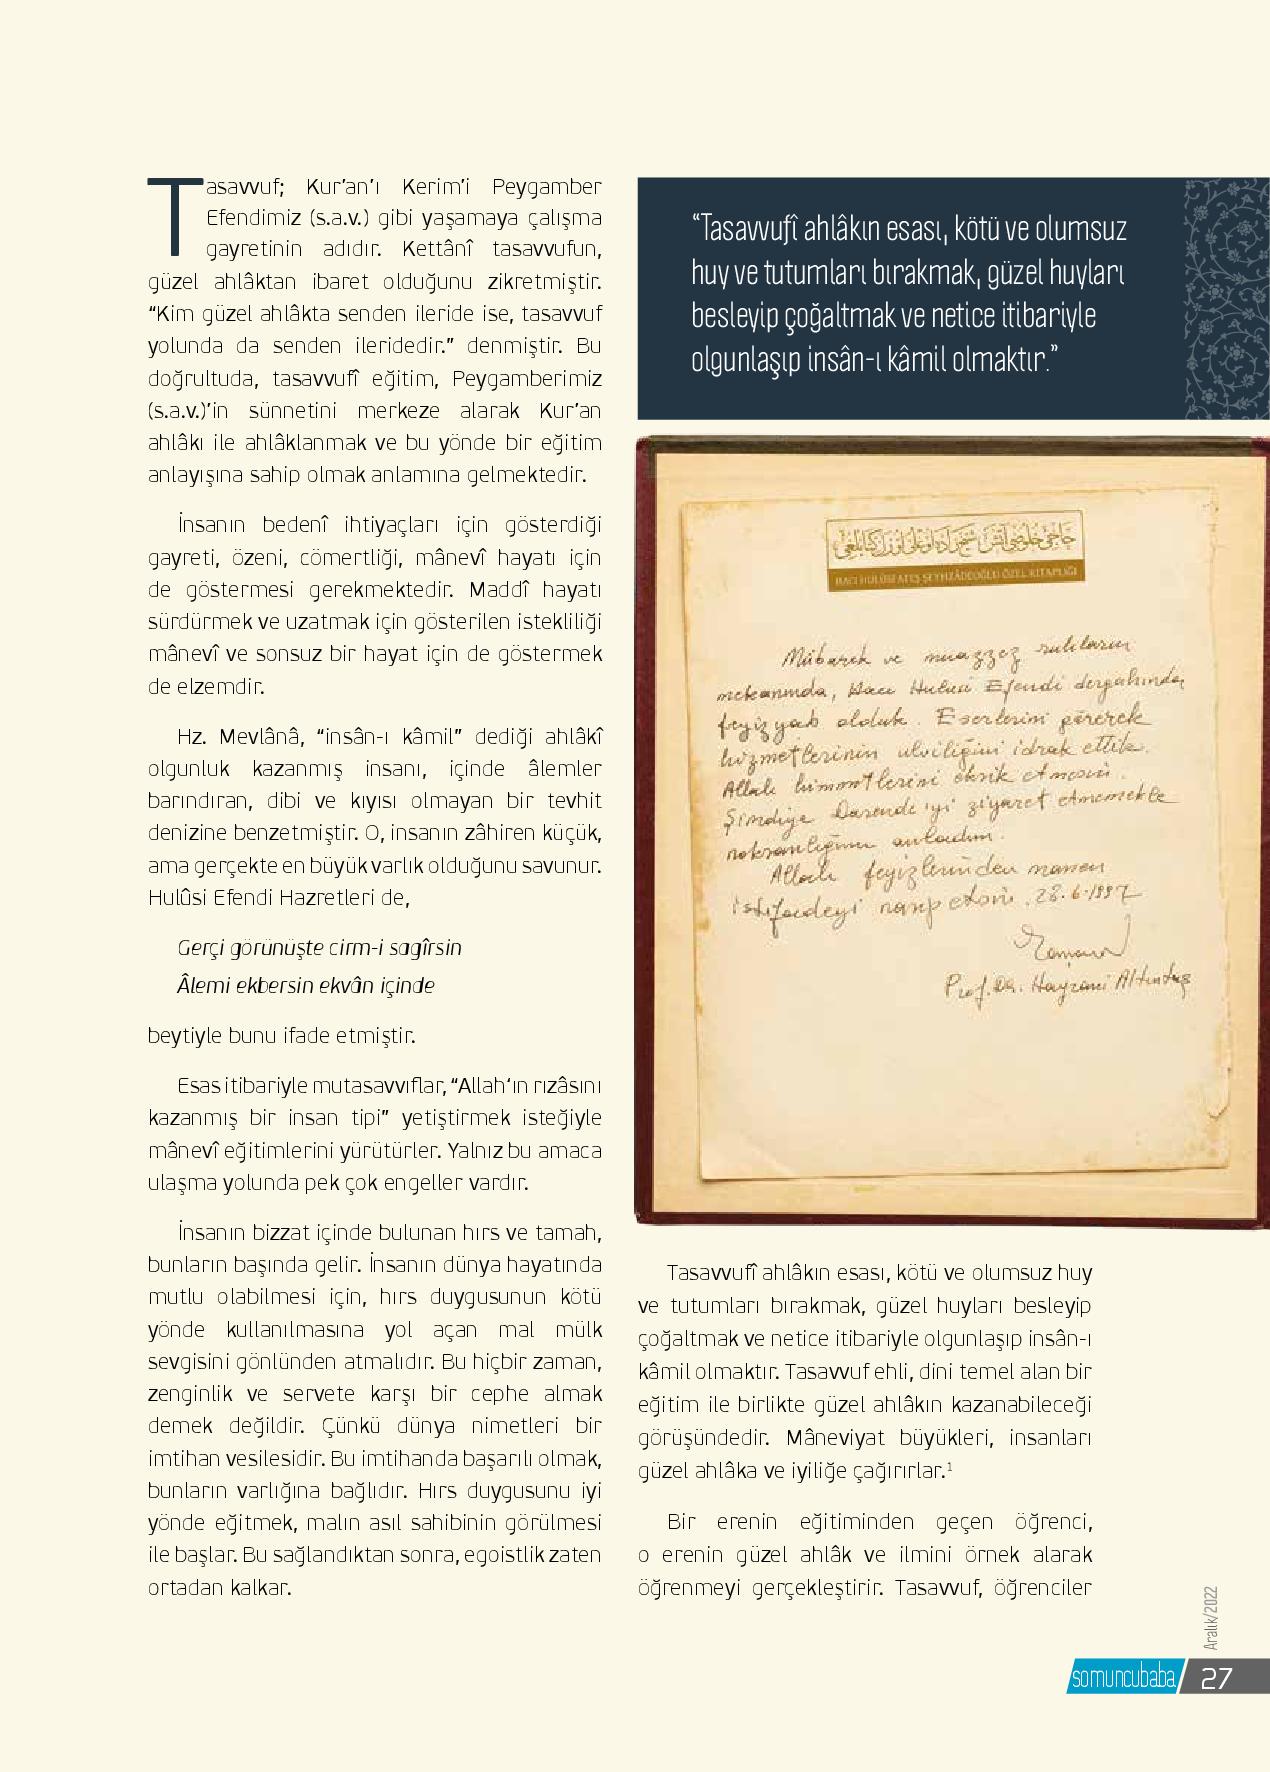 Tasavvuf; Kur’an’ı Kerim’i Peygamber
Efendimiz (s.a.v.) gibi yaşamaya çalışma
gayretinin adıdır. Kettânî tasavvufun,
güzel ahlâktan ibaret olduğunu zikretmiştir.
“Kim güzel ahlâkta senden ileride ise, tasavvuf
yolunda da senden ileridedir.” denmiştir. Bu
doğrultuda, tasavvufî eğitim, Peygamberimiz
(s.a.v.)’in sünnetini merkeze alarak Kur’an
ahlâkı ile ahlâklanmak ve bu yönde bir eğitim
anlayışına sahip olmak anlamına gelmektedir.
İnsanın bedenî ihtiyaçları için gösterdiği
gayreti, özeni, cömertliği, mânevî hayatı için
de göstermesi gerekmektedir. Maddî hayatı
sürdürmek ve uzatmak için gösterilen istekliliği
mânevî ve sonsuz bir hayat için de göstermek
de elzemdir.
Hz. Mevlânâ, “insân-ı kâmil” dediği ahlâkî
olgunluk kazanmış insanı, içinde âlemler
barındıran, dibi ve kıyısı olmayan bir tevhit
denizine benzetmiştir. O, insanın zâhiren küçük,
ama gerçekte en büyük varlık olduğunu savunur.
Hulûsi Efendi Hazretleri de,
Gerçi görünüşte cirm-i sagîrsin
Âlemi ekbersin ekvân içinde
beytiyle bunu ifade etmiştir.
Esas itibariyle mutasavvıflar, “Allah‘ın rızâsını
kazanmış bir insan tipi” yetiştirmek isteğiyle
mânevî eğitimlerini yürütürler. Yalnız bu amaca
ulaşma yolunda pek çok engeller vardır.
İnsanın bizzat içinde bulunan hırs ve tamah,
bunların başında gelir. İnsanın dünya hayatında
mutlu olabilmesi için, hırs duygusunun kötü
yönde kullanılmasına yol açan mal mülk
sevgisini gönlünden atmalıdır. Bu hiçbir zaman,
zenginlik ve servete karşı bir cephe almak
demek değildir. Çünkü dünya nimetleri bir
imtihan vesilesidir. Bu imtihanda başarılı olmak,
bunların varlığına bağlıdır. Hırs duygusunu iyi
yönde eğitmek, malın asıl sahibinin görülmesi
ile başlar. Bu sağlandıktan sonra, egoistlik zaten
ortadan kalkar.
“Tasavvufî ahlâkın esası, kötü ve olumsuz
huy ve tutumları bırakmak, güzel huyları
besleyip çoğaltmak ve netice itibariyle
olgunlaşıp insân-ı kâmil olmaktır.”
HACI HULÛSİ ATEŞ ŞEYHZÂDEOĞLU ÖZEL KİTAPLIĞI
Mübarek ve muazzez ruhların
mekanında, Hacı Hulusi Efendi dergahında
feyizyab olduk. Eserlerini görerek
hizmetlerinin ulviliğini idrak ettik.
Allah himmetlerini eksik etmesin.
Şimdiye Darende'yi ziyaret etmemekle
noksanlığımı anladım.
Allah feyizlerinden manen
istifadeyi nasip etsin. 28.6.1997
Prof. Dr. Hayrani Altıntaş
Tasavvufî ahlâkın esası, kötü ve olumsuz huy
ve tutumları bırakmak, güzel huyları besleyip
çoğaltmak ve netice itibariyle olgunlaşıp insân-ı
kâmil olmaktır. Tasavvuf ehli, dini temel alan bir
eğitim ile birlikte güzel ahlâkın kazanabileceği
görüşündedir. Mâneviyat büyükleri, insanları
güzel ahlâka ve iyiliğe çağırırlar.¹
Bir erenin eğitiminden geçen öğrenci,
o erenin güzel ahlâk ve ilmini örnek alarak
öğrenmeyi gerçekleştirir. Tasavvuf, öğrenciler
Aralık/2022
somuncubaba 27